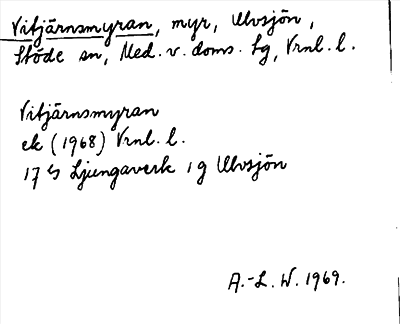 Vitjärnsmyran, myr, Ulvsjön,
Stöde sn, Med. v. doms. lg, Vrnl. l.
Vitjärnsmyran
ek (1968) Vrnl. l.
17 G Ljungaverk 1 g Ulvsjön
A.-L. W. 1969.